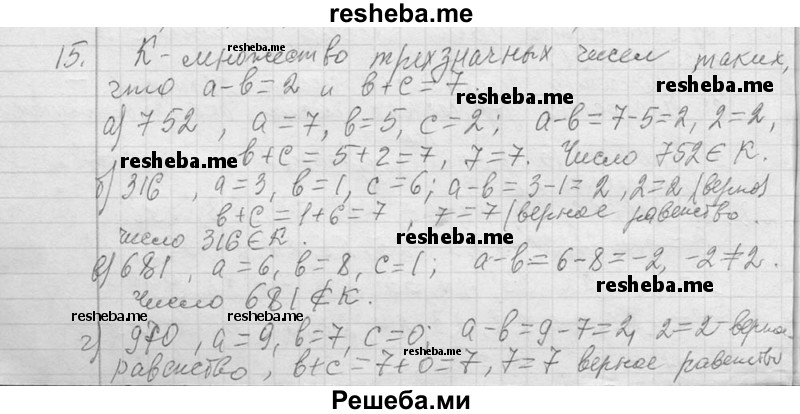 resheba.me
15. К - множество трехзначных чисел таких,
resheba.me
что а-в=2 и в+с=7.
resheba.me
а) 752, а=7, в=5, с=2; а-в=7-5=2, 2=2,
resheba.me
в+с=5+2=7, 7=7. Число 752∈К.
б) 316, а=3, в=1, с=6; а-в=3-1=2, 2=2 (верно)
в+с=1+6=7, 7=7 (верное равенство.
число 316∈К.
resheba.me
в) 681, а=6, в=8, с=1; а-в=6-8=-2, -2≠2.
Число 681∉К.
resheba.me
resheba.me
г) 970, а=9, в=7, с=0; а-в=9-7=2, 2=2-верное
resheba.me
равенство, в+с=7+0=7, 7=7 верное равенство
Решеба.ми